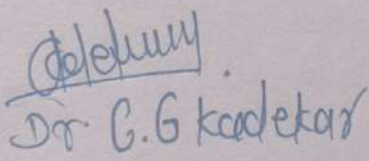 Dr G.G Kadekar